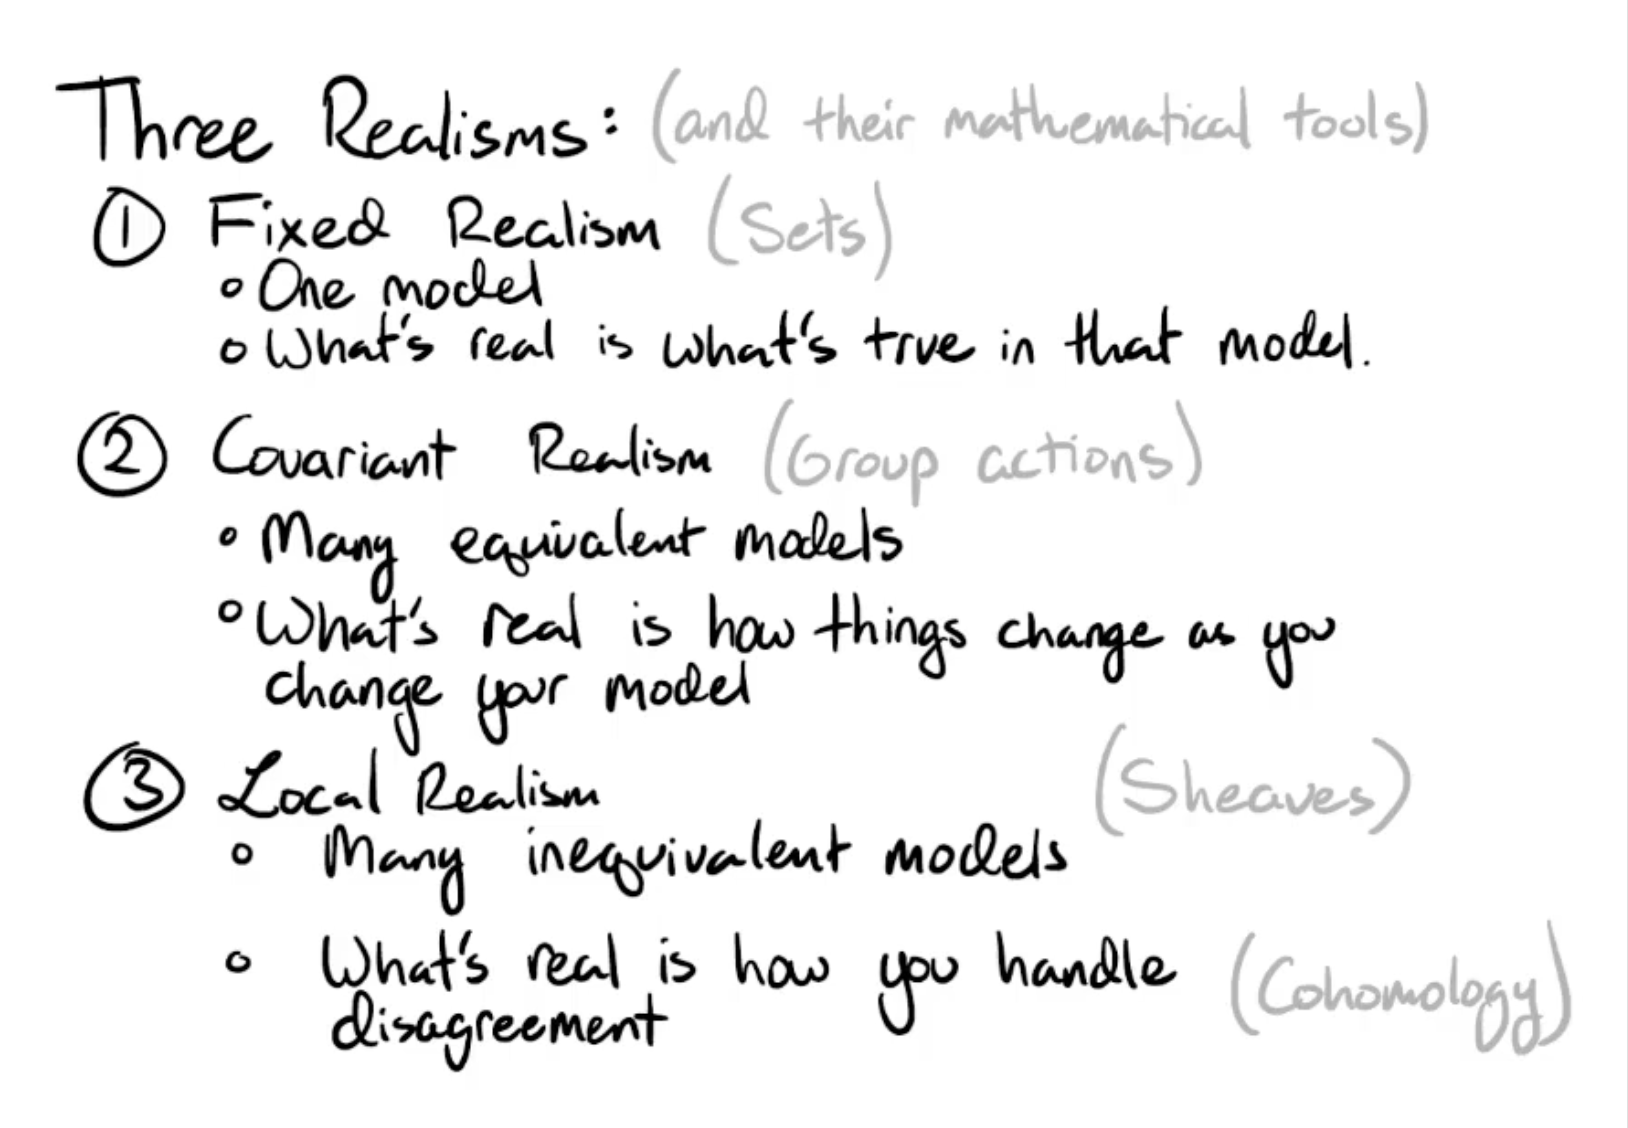 Three Realisms: (and their mathematical tools)
① Fixed Realism (Sets)
∘ One model
∘ What's real is what's true in that model.
② Covariant Realism (Group actions)
∘ Many equivalent models
∘ What's real is how things change as you
change your model
③ Local Realism (Sheaves)
∘ Many inequivalent models
∘ What's real is how you handle (Cohomology)
disagreement